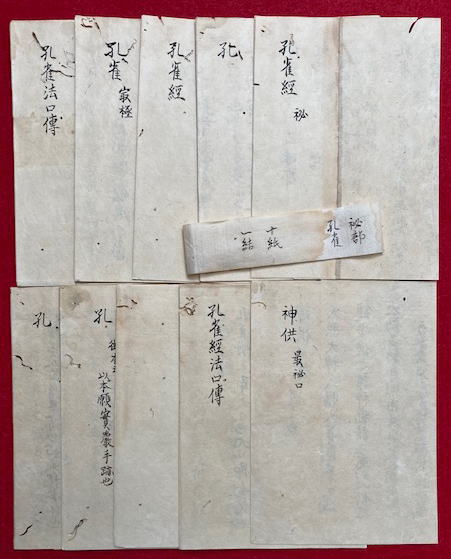 孔雀經 秘
孔
孔雀經
孔雀 㝡極
孔雀法口傳
秘部
孔雀
十紙
一結
神供 最秘口
孔雀經法口傳
孔
以本願實嚴手跡也
孔